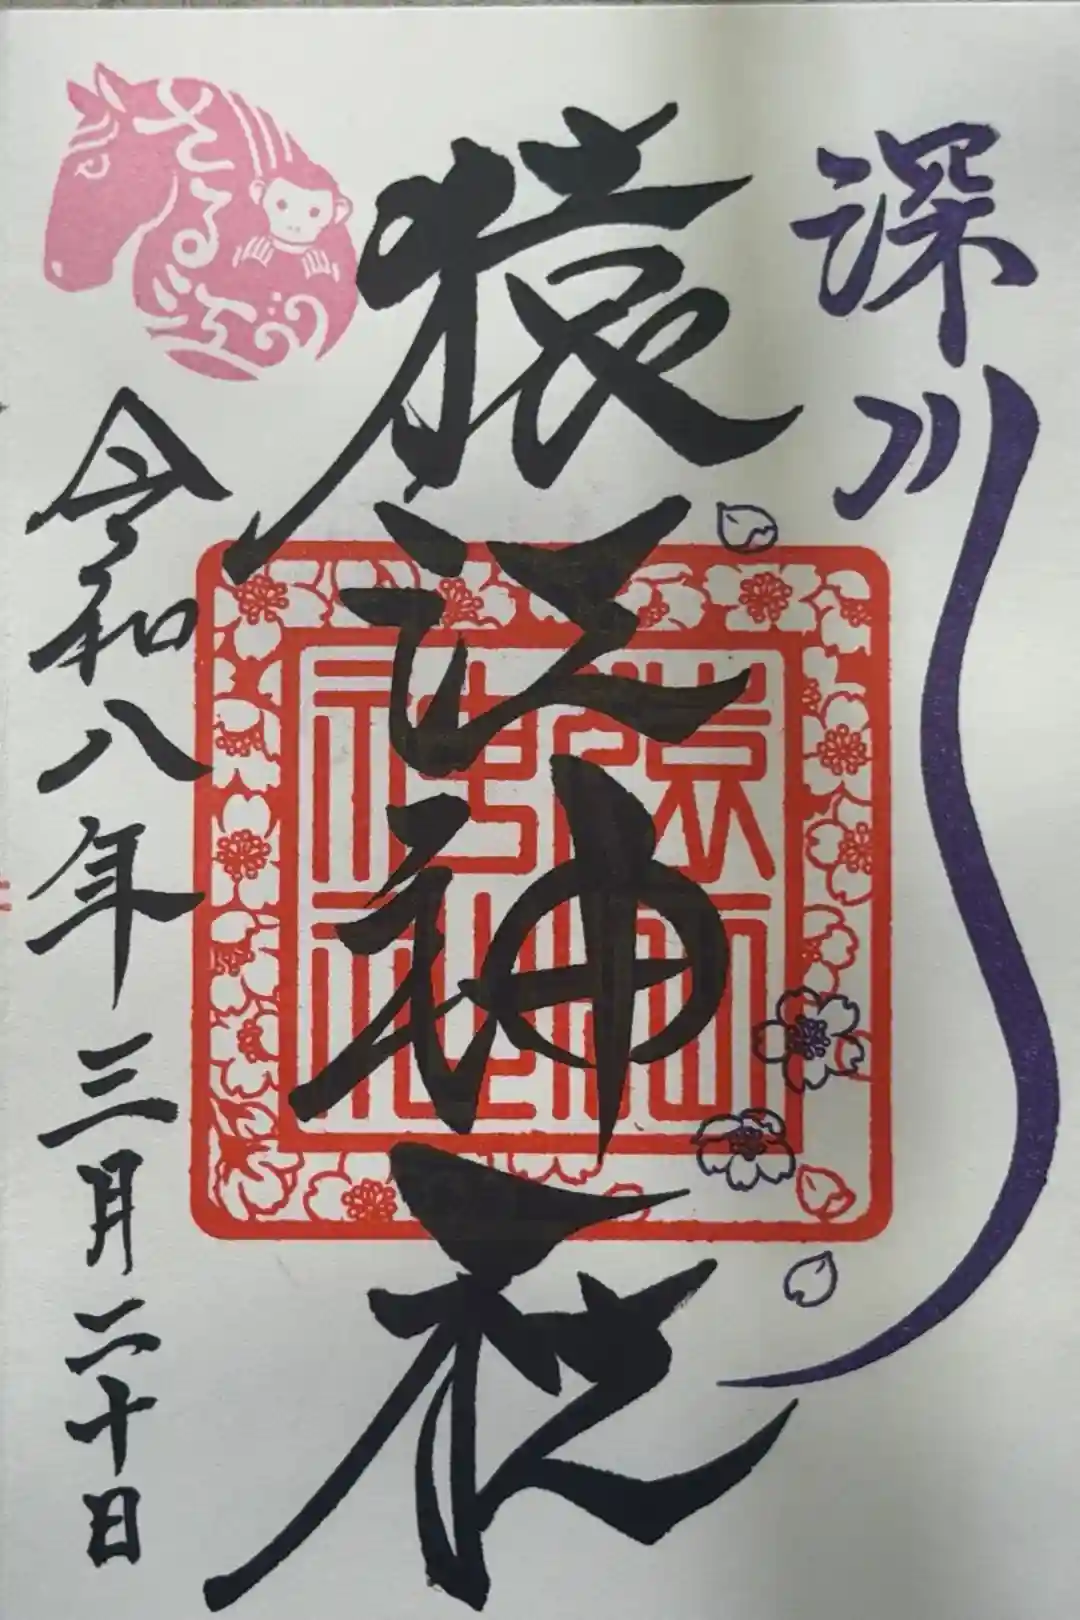 深川
猿江神社
猿江
神社
さるえ
令和八年三月二十日